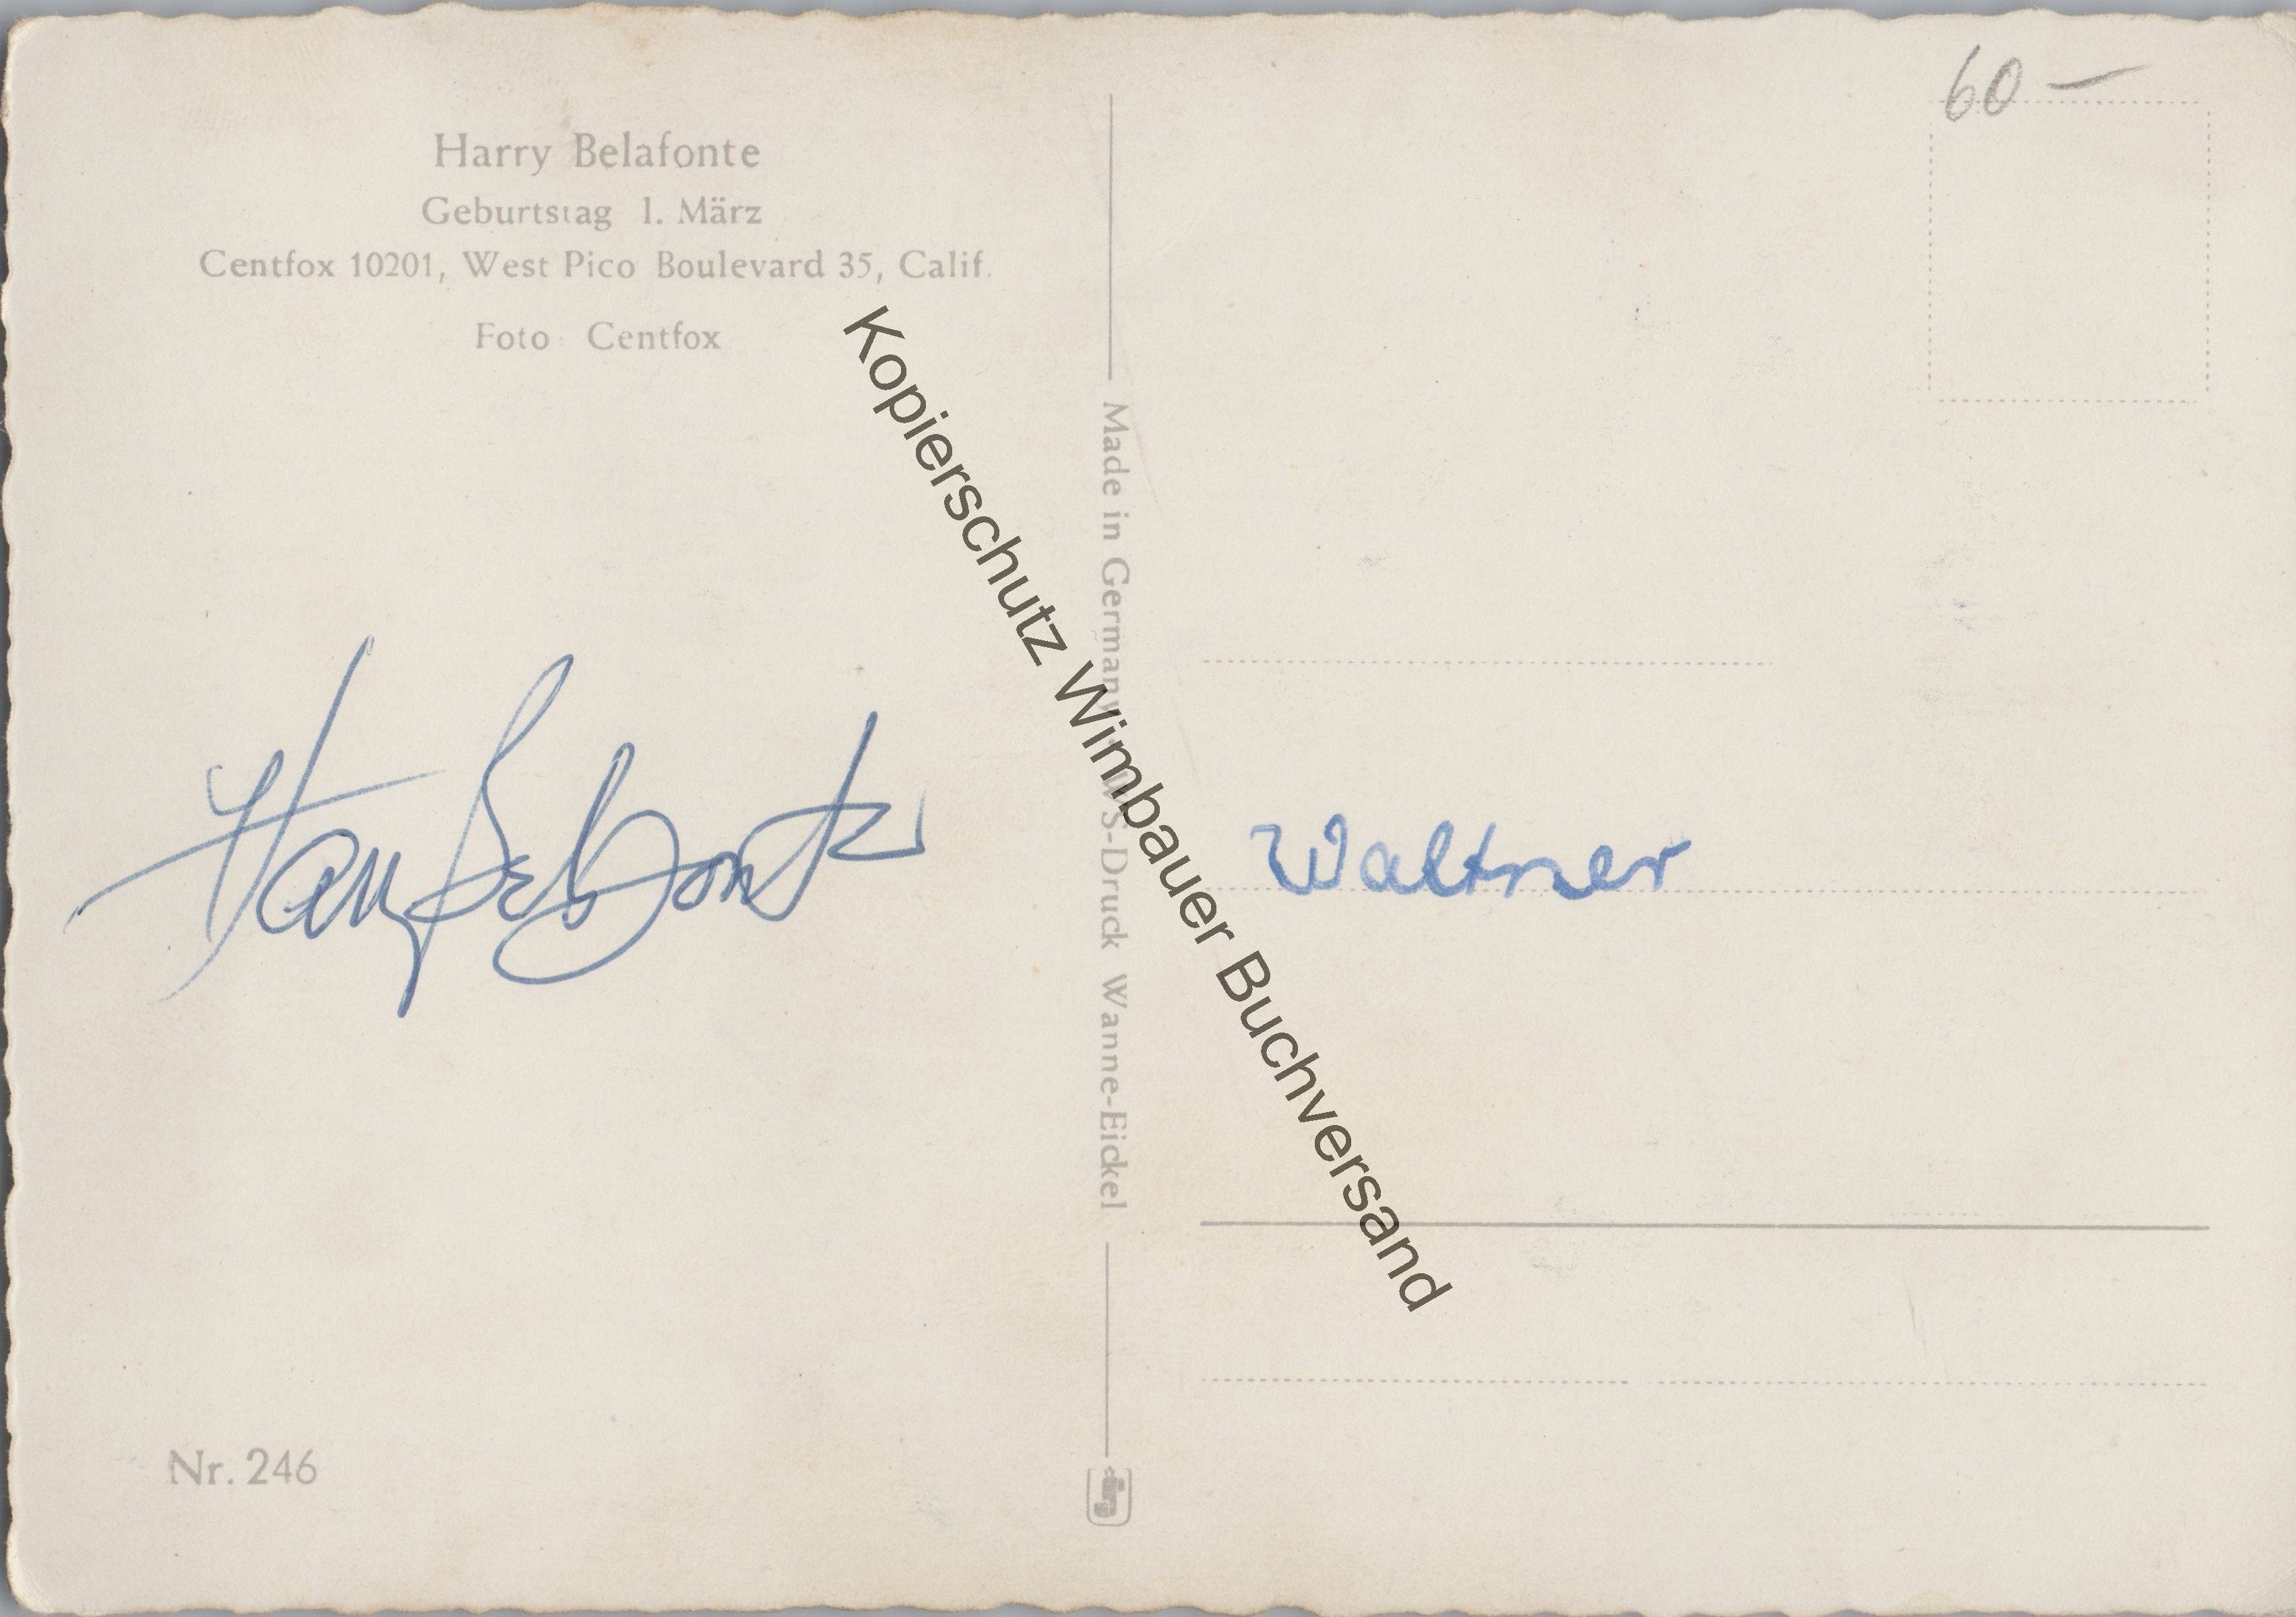 Harry Belafonte
Geburtstag 1. März
Centfox 10201, West Pico Boulevard 35, Calif.
Foto Centfox
Harry Belafonte
Nr. 246
Made in Germany WS-Druck Wanne-Eickel
Kopierschutz Wimbauer Buchversand
60 —
Waltner